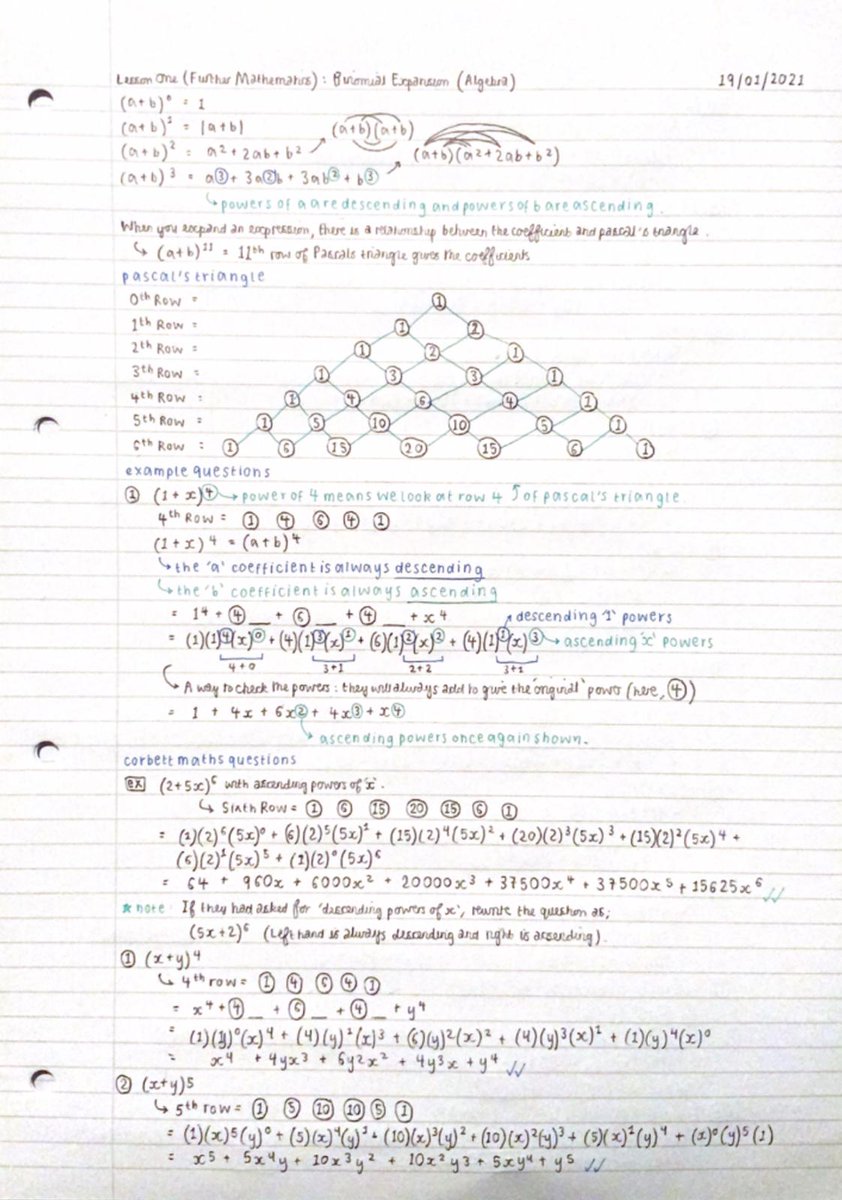 Lesson One (Further Mathematics) : Binomial Expansion (Algebra) 19/01/2021
(a+b)⁰ = 1
(a+b)¹ = (a+b) (a+b)(a+b)
(a+b)² = a² + 2ab + b² ↗ (a+b)(a²+2ab+b²)
(a+b)³ = a³ + 3a²b + 3ab² + b³ ↗
↳ powers of a are descending and powers of b are ascending.
When you expand an expression, there is a relationship between the coefficient and pascal's triangle.
↳ (a+b)¹¹ = 11th row of Pascals triangle gives the coefficients
pascal's triangle
0th Row = 1
1th Row = 1 2
2th Row = 1 2 1
3th Row = 1 3 3 1
4th Row = 1 4 6 4 1
5th Row = 1 5 10 10 5 1
6th Row = 1 6 15 20 15 6 1
example questions
① (1+x)⁴ → power of 4 means we look at row 4 ↑ of pascal's triangle.
4th Row = ① ④ ⑥ ④ ①
(1+x)⁴ = (a+b)⁴
↳ the 'a' coefficient is always descending
↳ the 'b' coefficient is always ascending
= 1⁴ + ④ __ + ⑥ __ + ④ __ + x⁴ ↗ descending '1' powers
= (1)(1)⁴(x)⁰ + (4)(1)³(x)¹ + (6)(1)²(x)² + (4)(1)¹(x)³ → ascending 'x' powers
4+0 3+1 2+2 3+1
↳ A way to check the powers : they will always add to give the 'original' power (here, ④)
= 1 + 4x + 6x² + 4x³ + x⁴
↳ ascending powers once again shown.
corbett maths questions
ex (2+5x)⁶ with ascending powers of 'x'.
↳ Sixth Row = ① ⑥ ⑮ ⑳ ⑮ ⑥ ①
= (1)(2)⁶(5x)⁰ + (6)(2)⁵(5x)¹ + (15)(2)⁴(5x)² + (20)(2)³(5x)³ + (15)(2)²(5x)⁴ +
(6)(2)¹(5x)⁵ + (1)(2)⁰(5x)⁶
= 64 + 960x + 6000x² + 20000x³ + 37500x⁴ + 37500x⁵ + 15625x⁶ ✓✓
★ note : If they had asked for 'descending powers of x', rewrite the question as;
(5x+2)⁶ (Left hand is always descending and right is ascending).
① (x+y)⁴
↳ 4th row = ① ④ ⑥ ④ ①
= x⁴ + ④ __ + ⑥ __ + ④ __ + y⁴
= (1)(y)⁰(x)⁴ + (4)(y)¹(x)³ + (6)(y)²(x)² + (4)(y)³(x)¹ + (1)(y)⁴(x)⁰
= x⁴ + 4yx³ + 6y2x² + 4y³x + y⁴ ✓✓
② (x+y)⁵
↳ 5th row = ① ⑤ ⑩ ⑩ ⑤ ①
= (1)(x)⁵(y)⁰ + (5)(x)⁴(y)¹ + (10)(x)³(y)² + (10)(x)²(y)³ + (5)(x)¹(y)⁴ + (x)⁰(y)⁵(1)
= x⁵ + 5x⁴y + 10x³y² + 10x²y³ + 5xy⁴ + y⁵ ✓✓